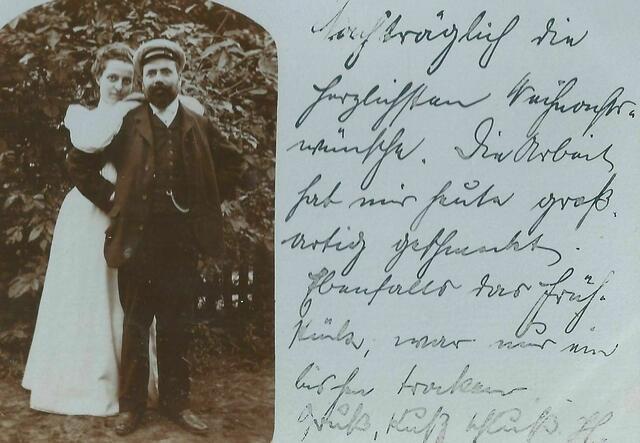 Nachträglich die
herzlichsten Weihnachts-
wünsche. Die Arbeit
hat mir heute groß-
artig geschmeckt.
Ebenfalls das Früh-
stück, war nur ein
bischen trocken
Gruß, Kuß Schluß. H.